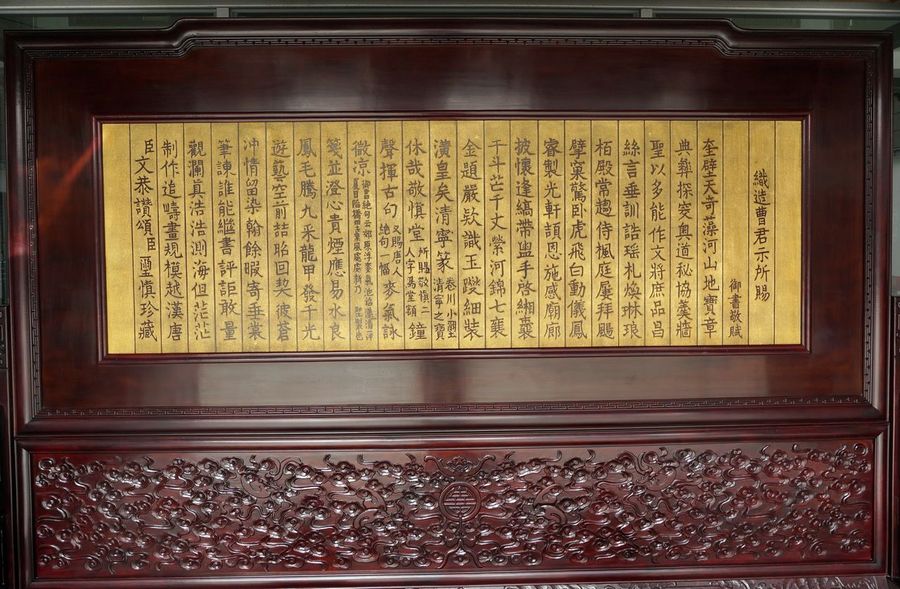 織造曹君示所賜
御書敬賦
奎壁天奇藻河山地寶章
典彝探突奧道秘協羹牆
聖以多能作文將庶品昌
絲言垂訓誥瑤札煥琳琅
栢殿常趨侍楓庭屢拜颺
擘窠驚臥虎飛白動儀鳳
家製光軒頡恩施感廟廊
披懷逢縞帶盥手啓緗囊
干斗芒千丈縈河錦七襄
金題嚴欵識玉躞細裝
潢皇矣清寧篆卷用小璽清寧之寶
休哉敬慎堂所賜敬慎二人字為堂額鐘
聲揮古勻又賜唐人絕句一幅麥氣詠
微凉
箋並澄心貴煙應易水良
鳳毛騰九采龍甲發千光
遊藝空前喆貽回契彼蒼
沖情留染翰餘暇寄垂裳
筆諫誰能繼書評詎敢量
觀瀾真浩浩測海但茫茫
制作追疇畫規模越漢唐
臣文恭讚頌臣璽慎珍藏